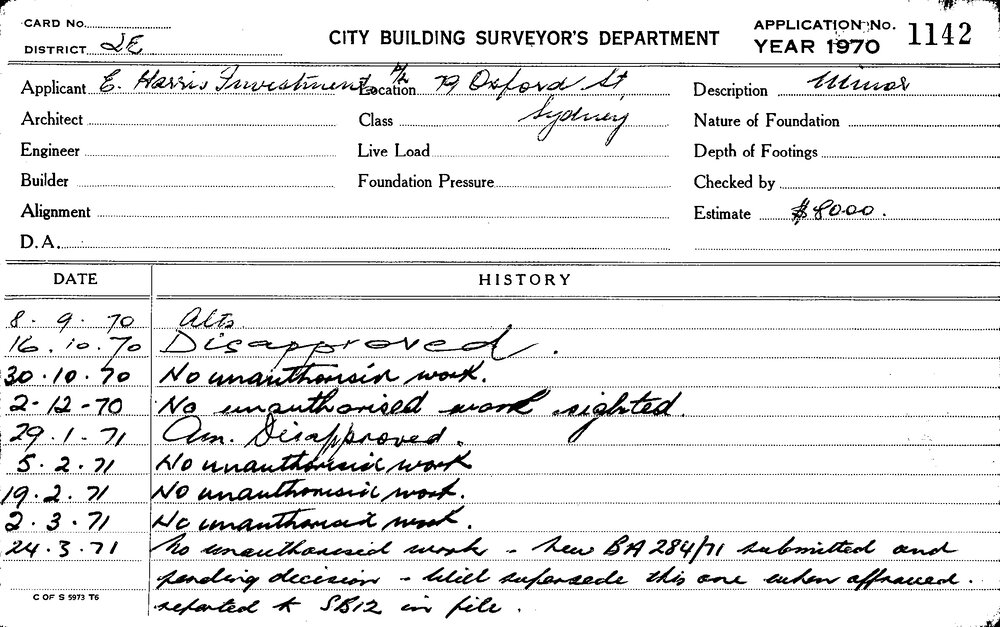 CARD No.
DISTRICT 2E
CITY BUILDING SURVEYOR'S DEPARTMENT
APPLICATION No. 1142
YEAR 1970
Applicant E. Harris Investments P/L Location 79 Oxford St, Description Minor
Sydney
Architect Class Nature of Foundation
Engineer Live Load Depth of Footings
Builder Foundation Pressure Checked by
Alignment Estimate $8000.
D.A.
DATE HISTORY
8. 9. 70 Alts.
16. 10. 70 Disapproved.
30.10.70 No unauthorised work.
2-12-70 No unauthorised work sighted.
29.1.71 Am. Disapproved.
5.2.71 No unauthorised work
19.2.71 No unauthorised work.
2.3.71 No unauthorised work.
24.3.71 No unauthorised work - New BA 284/71 submitted and
pending decision - Will supersede this one when approved.
reported to SB12 in file.
C OF S 5973 T6